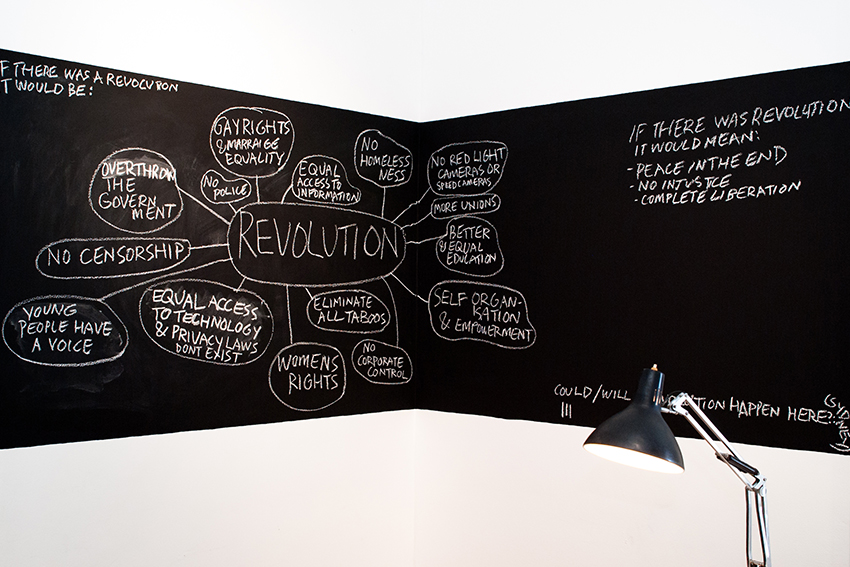 IF THERE WAS A REVOLUTION
IT WOULD BE:
GAY RIGHTS
& MARRAIGE
EQUALITY
NO
HOMELESS
NESS
NO RED LIGHT
CAMERAS OR
SPEED CAMERAS
OVERTHROW
THE
GOVERN
MENT
NO
POLICE
EQUAL
ACCESS TO
INFORMATION
MORE UNIONS
REVOLUTION
BETTER
& EQUAL
EDUCATION
NO CENSORSHIP
YOUNG
PEOPLE HAVE
A VOICE
EQUAL ACCESS
TO TECHNOLOGY
& PRIVACY LAWS
DONT EXIST
ELIMINATE
ALL TABOOS
SELF ORGAN-
ISATION
& EMPOWERMENT
WOMENS
RIGHTS
NO
CORPORATE
CONTROL
IF THERE WAS REVOLUTION
IT WOULD MEAN:
- PEACE IN THE END
- NO INJUSTICE
- COMPLETE LIBERATION
COULD/WILL HAPPEN HERE?
III